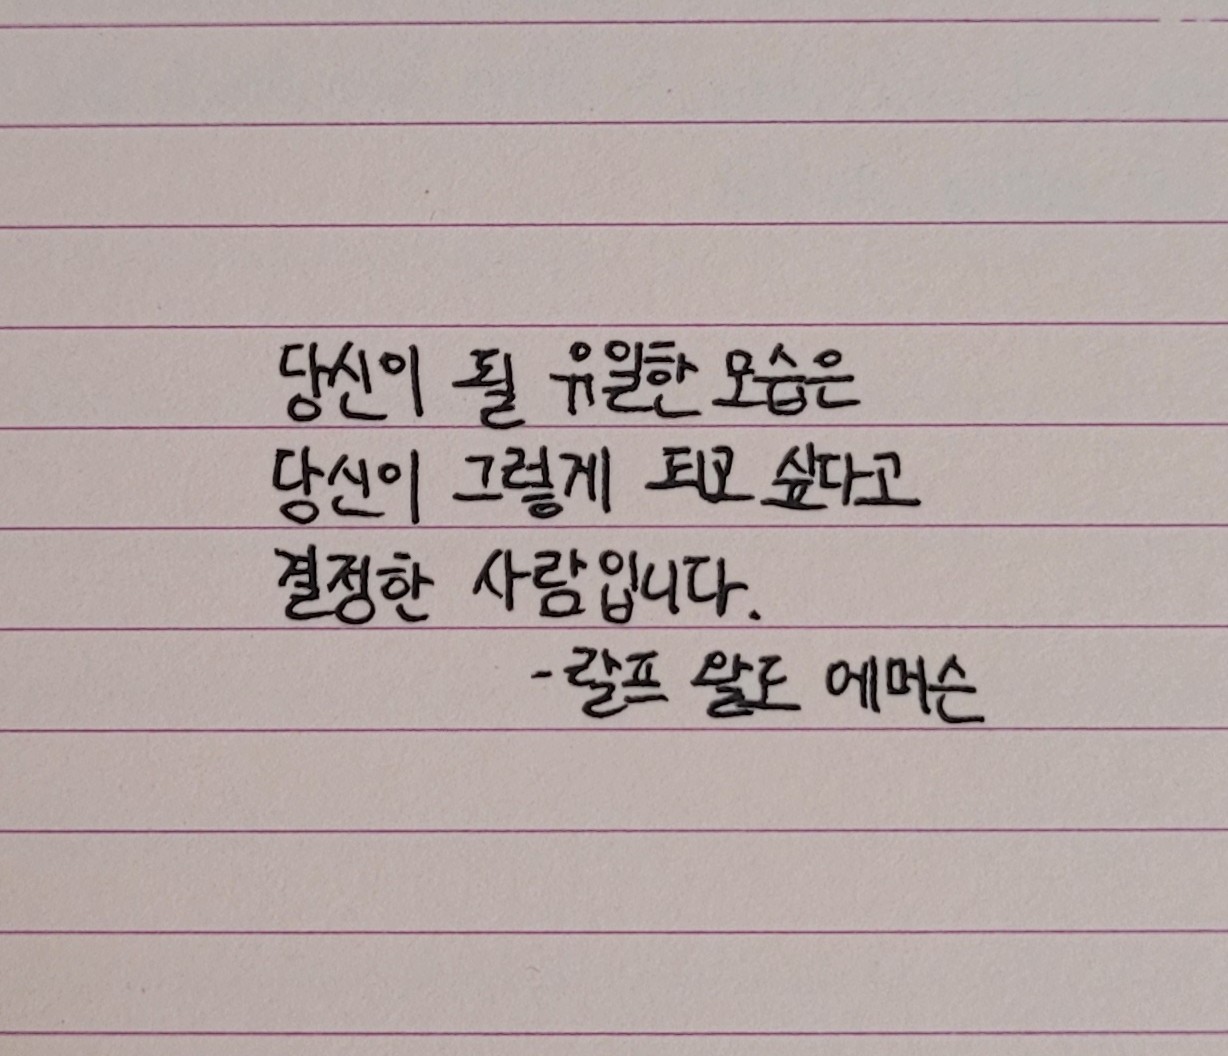 당신이 될 유일한 모습은
당신이 그렇게 되고 싶다고
결정한 사람입니다.
-랄프 왈도 에머슨